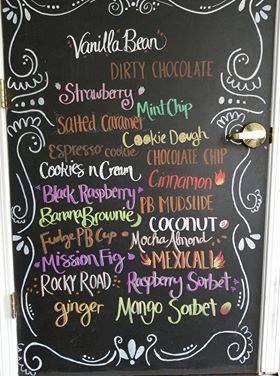 Vanilla Bean
DIRTY CHOCOLATE
Strawberry
Mint Chip
Salted Caramel
Cookie Dough
Espresso cookie
CHOCOLATE CHIP
Cookies n Cream
Cinnamon
Black Raspberry
PB MUDSLIDE
Banana Brownie
COCONUT
Fudge PB Cup
Mocha Almond
Mission Fig
MEXICALI
ROCKY ROAD
Raspberry Sorbet
ginger
Mango Sorbet